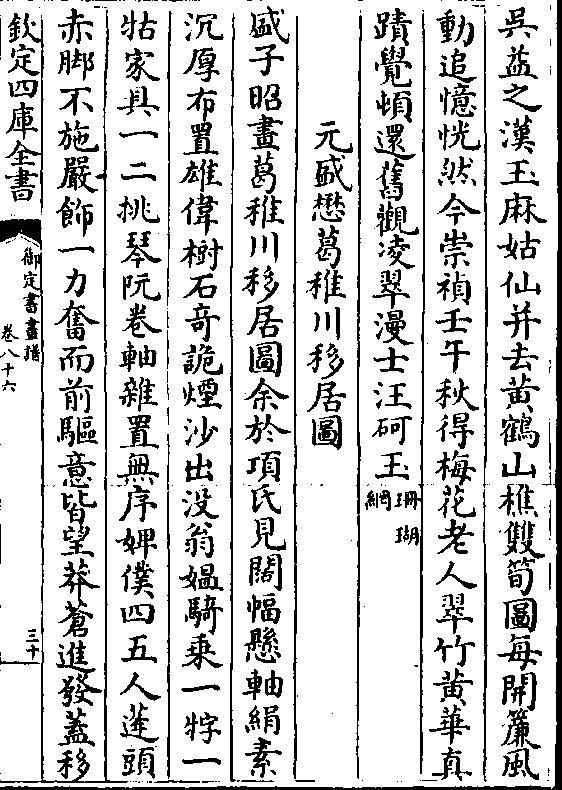 吳益之漢玉麻姑仙并去黃鶴山樵雙筍圖每開簾風
動追憶恍然今崇禎壬午秋得梅花老人翠竹黃華真
蹟覺頓還舊觀凌翠漫士汪砢玉珊瑚網
元盛懋葛稚川移居圖
盛子昭畫葛稚川移居圖余於項氏見闊幅懸軸絹素
沉厚布置雄偉樹石竒詭煙沙出没翁媪騎乗一牸一
牯家具一二挑琴阮卷軸雜置無序婢僕四五人蓬頭
赤脚不施嚴飾一力奮而前驅意皆望莽蒼進發蓋移
欽定四庫全書
御定書畫譜
卷八十六
三十